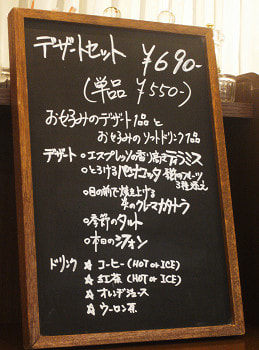 デザートセット ¥690-
(単品 ¥550-)
お好みのデザート1品と
お好みのソフトドリンク1品
デザート ○エスプレッソの香り高きティラミス
○とろけるパンナコッタ 季節のフルーツ
3種添え
○目の前で焼き上げる
冬のクレマカタラナ
○季節のタルト
○本日のシフォン
ドリンク ☆コーヒー(HOT or ICE)
☆紅茶(HOT or ICE)
☆オレンジジュース
☆ウーロン茶